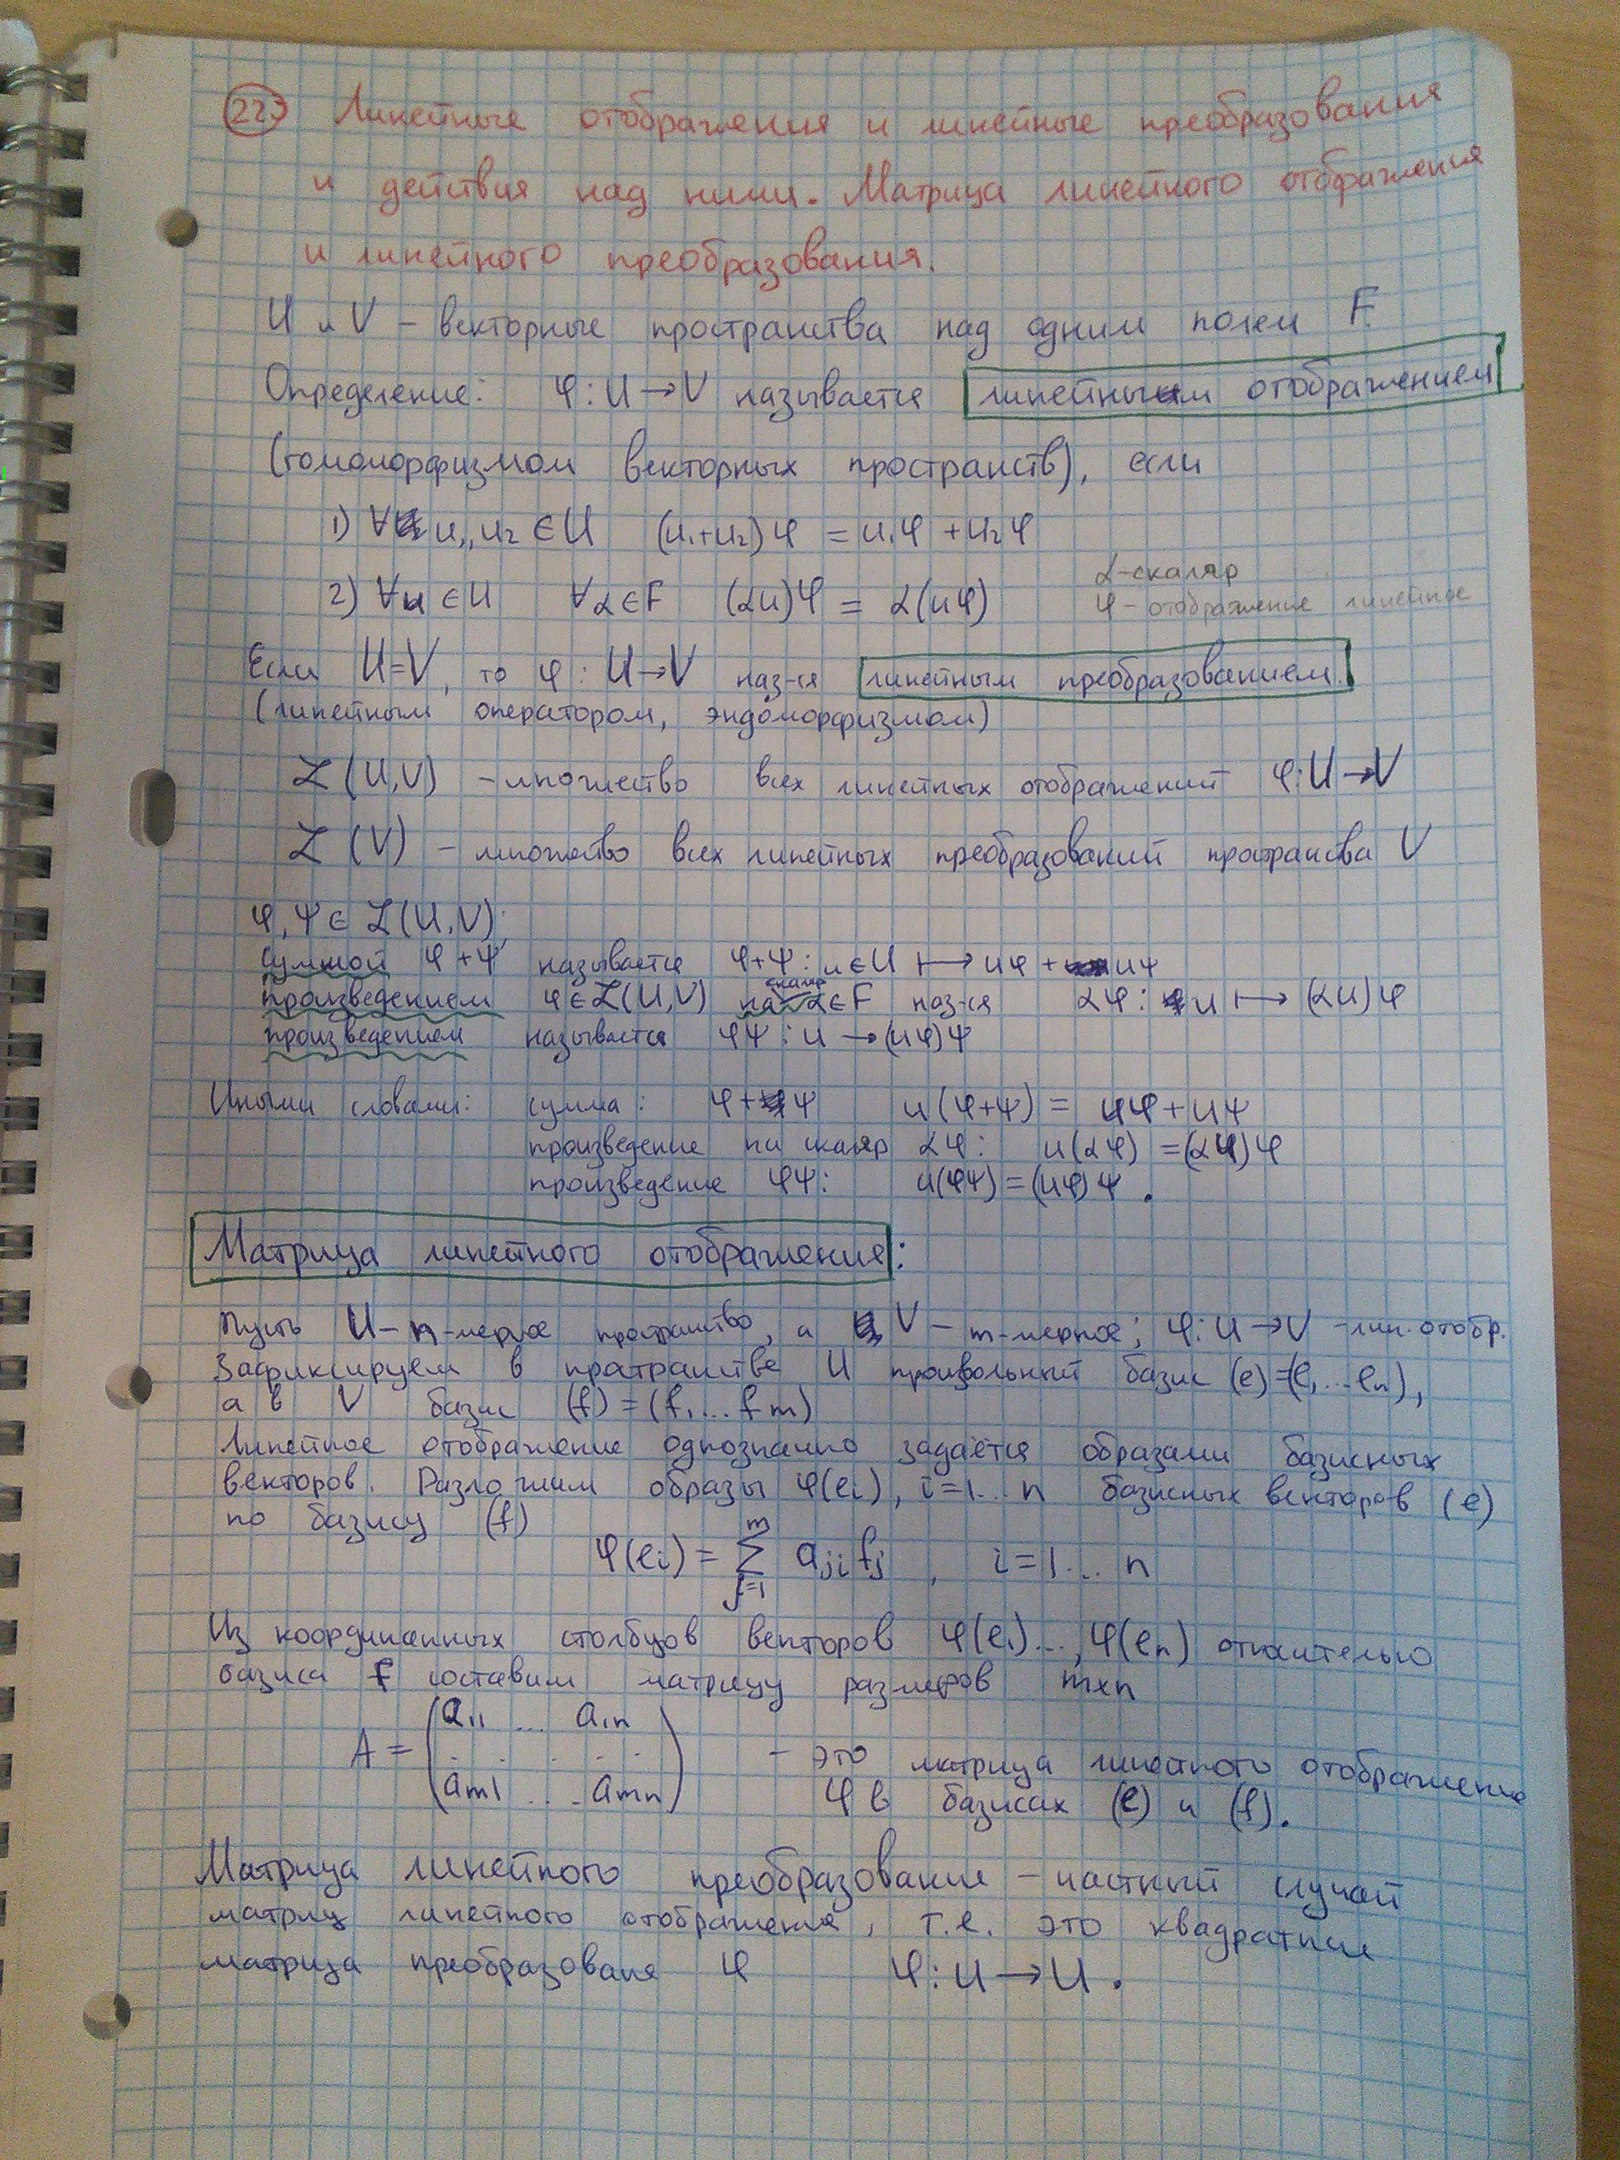 22. Линейные отображения и линейные преобразования
и действия над ними. Матрица линейного отображения
и линейного преобразования.
U и V – векторные пространства над одним полем F.
Определение: φ: U → V называется линейным отображением
(гомоморфизмом векторных пространств), если
1) ∀ u₁, u₂ ∈ U (u₁+u₂)φ = u₁φ + u₂φ
α-скаляр
2) ∀u ∈ U ∀α ∈ F (αu)φ = α(uφ) φ – отображение линейное
Если U=V, то φ: U → V наз-ся линейным преобразованием.
(линейным оператором, эндоморфизмом)
ℒ(U,V) – множество всех линейных отображений φ: U → V
ℒ(V) – множество всех линейных преобразований пространства V
φ, ψ ∈ ℒ(U,V):
суммой φ+ψ называется φ+ψ: u ∈ U ↦ uφ + uψ
произведением φ ∈ ℒ(U,V) на скаляр α ∈ F наз-ся αφ: u ↦ (αu)φ
произведением называется φψ: u → (uφ)ψ
Иными словами: сумма: φ+ψ u(φ+ψ) = uφ + uψ
произведение на скаляр αφ: u(αφ) = (αu)φ
произведение φψ: u(φψ) = (uφ)ψ.
Матрица линейного отображения:
Пусть U – n-мерное пространство, а V – m-мерное; φ: U → V – лин. отобр.
Зафиксируем в пратранстве U произвольный базис (e)=(e₁...eₙ),
а в V базис (f) = (f₁...fm)
Линейное отображение однозначно задаётся образами базисных
векторов. Разложим образы φ(ei), i=1...n базисных векторов (e)
по базису (f)
φ(ei) = ∑_{j=1}^{m} aji fj , i=1...n
Из координатных столбцов векторов φ(e₁)..., φ(en) относительно
базиса f составим матрицу размеров m×n
A = (a₁₁ ... a₁n
. . . . .
am1 ... amn) – это матрица линейного отображения
φ в базисах (e) и (f).
Матрица линейного преобразование – частный случай
матриц линейного отображения, т.е. это квадратные
матрица преобразованя φ φ: U → U.